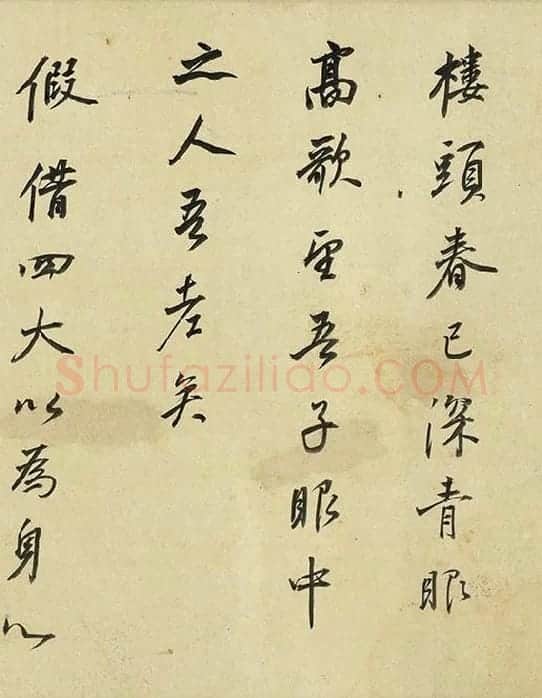 樓頭春已深青眼
高歌望吾子眼中
之人吾老矣
假借四大以為身以
Shufaziliao.COM